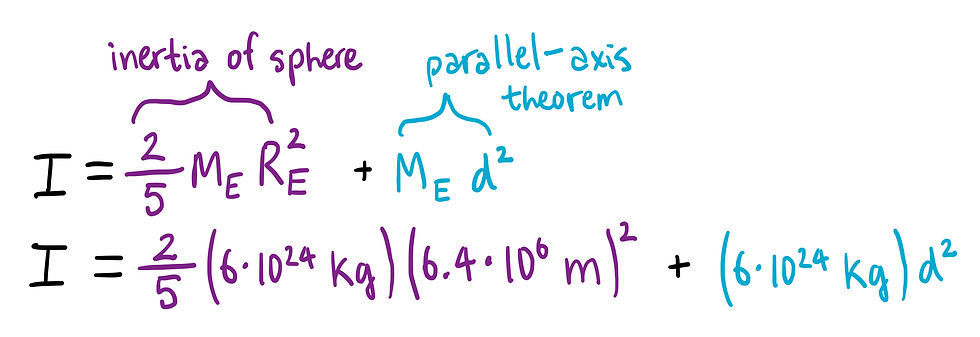 inertia of sphere
parallel-axis
theorem
I = 2/5 M_E R_E^2 + M_E d^2
I = 2/5 (6·10^24 kg)(6.4·10^6 m)^2 + (6·10^24 kg)d^2